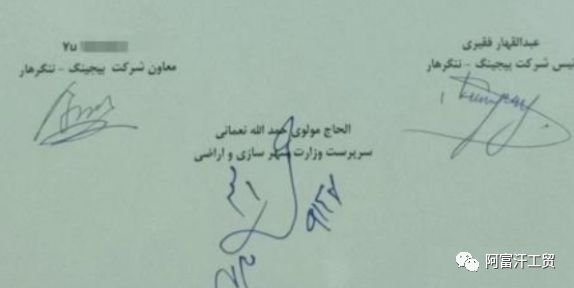 عبدالقهار فقیری
ئیس شرکت بیجینگ - ننگرهار
Yu
معاون شرکت بیجینگ - ننگرهار
الحاج مولوی حمد الله نعمانی
سرپرست وزارت شهر سازی و اراضی
阿富汗工贸